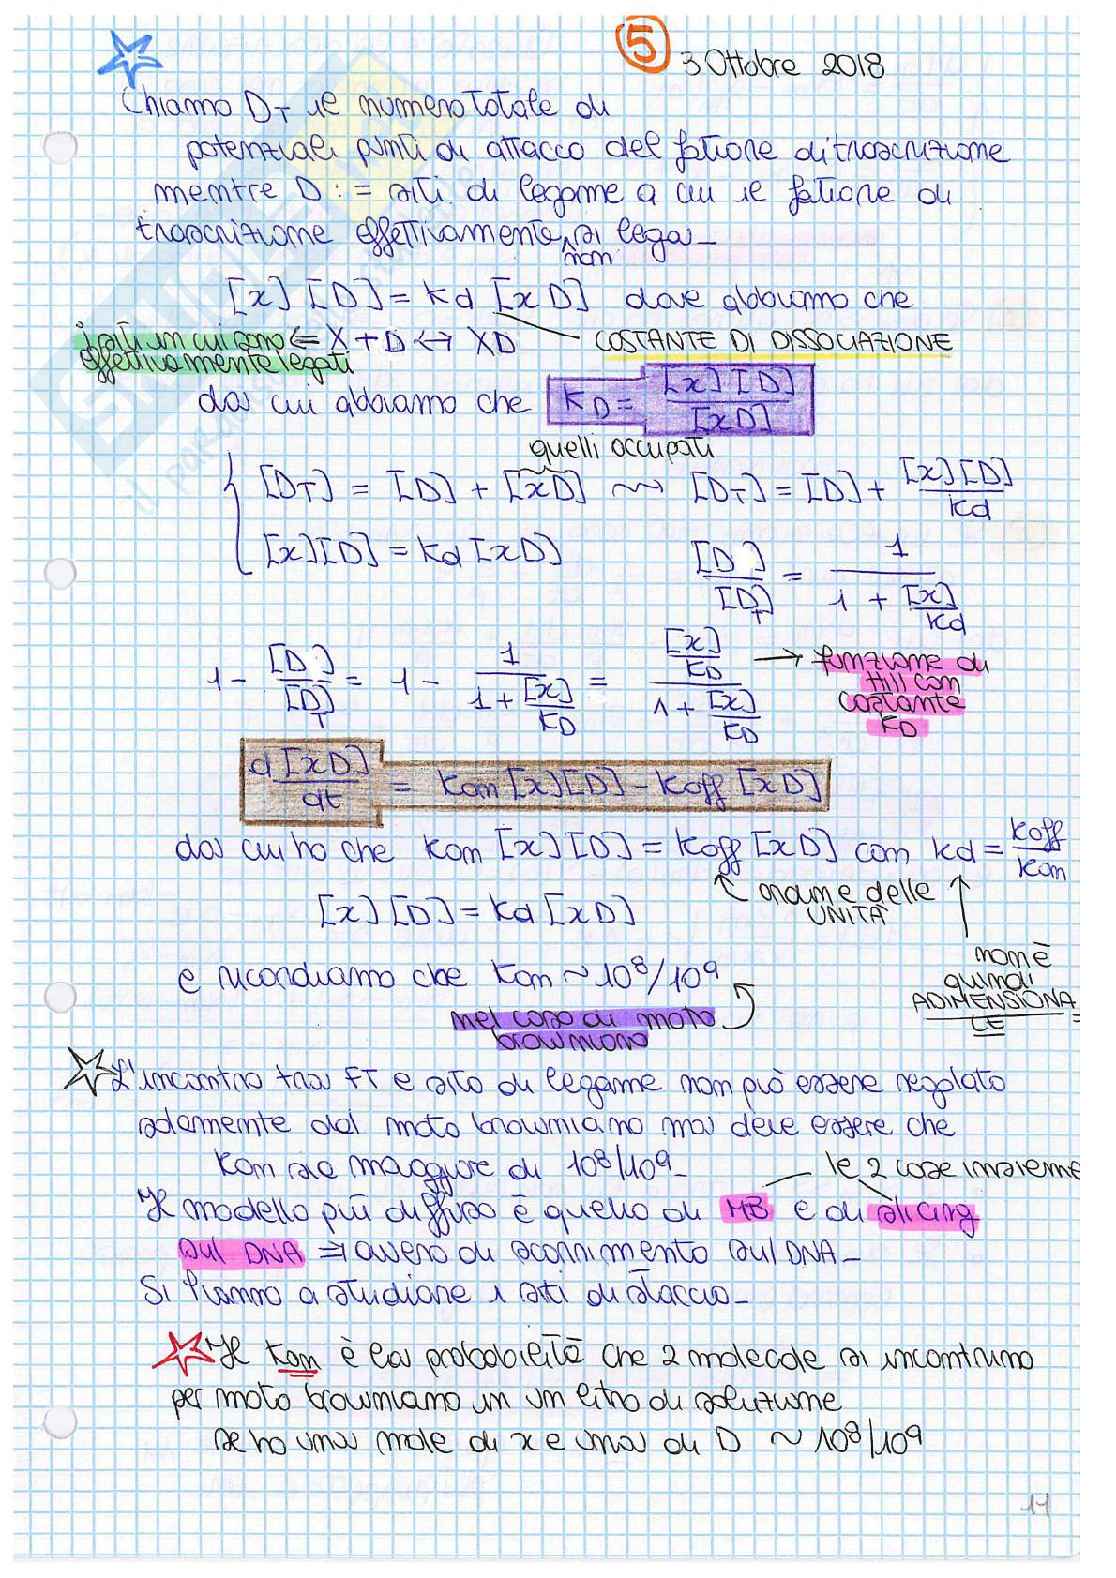 5
3 Ottobre 2018
Chiamo D_T il numero totale di
potenziali punti di attacco del fattore di trascrizione
mentre D := siti di legame a cui il fattore di
trascrizione effettivamente non si lega
[x][D] = Kd [xD] dove abbiamo che
i siti in cui sono effettivamente legati ⇐ X + D ↔ XD
COSTANTE DI DISSOCIAZIONE
da cui abbiamo che K_D = [x][D] / [xD]
quelli occupati
[D_T] = [D] + [xD] ⇝ [D_T] = [D] + [x][D]/Kd
[x][D] = Kd [xD]
[D]/[D]_T = 1 / (1 + [x]/Kd)
1 - [D]/[D]_T = 1 - 1/(1 + [x]/K_D) = ([x]/K_D) / (1 + [x]/K_D) → funzione di Hill con costante K_D
d[xD]/dt = Kon [x][D] - Koff [xD]
da cui ho che Kon [x][D] = Koff [xD] con Kd = Koff/Kon
UNITÀ
[x][D] = Kd [xD]
non è
quindi
ADIMENSIONA=
LE
e ricordiamo che Kon ~ 10⁸/10⁹
nel caso di moto
browniano
L'incontro tra FT e sito di legame non può essere regolato
solamente dal moto browniano ma deve essere che
Kon sia maggiore di 10⁸/10⁹
le 2 cose insieme
Il modello più diffuso è quello di MB e di slicing
sul DNA ⇒ ovvero di scorrimento sul DNA
Si vanno a studiare i siti di
Il Kon è la probabilità che 2 molecole si incontrino
per moto browniano in un litro di soluzione
se ho una mole di x e una di D ~ 10⁸/10⁹